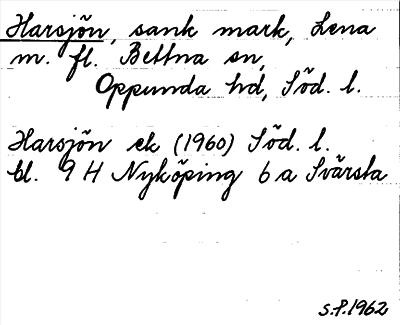 Harsjön, sank mark, Lena
m. fl. Bettna sn,
Oppunda hd, Söd. l.
Harsjön ek (1960) Söd. l.
bl. 9 H Nyköping 6 a Svärsta
s.f. 1962